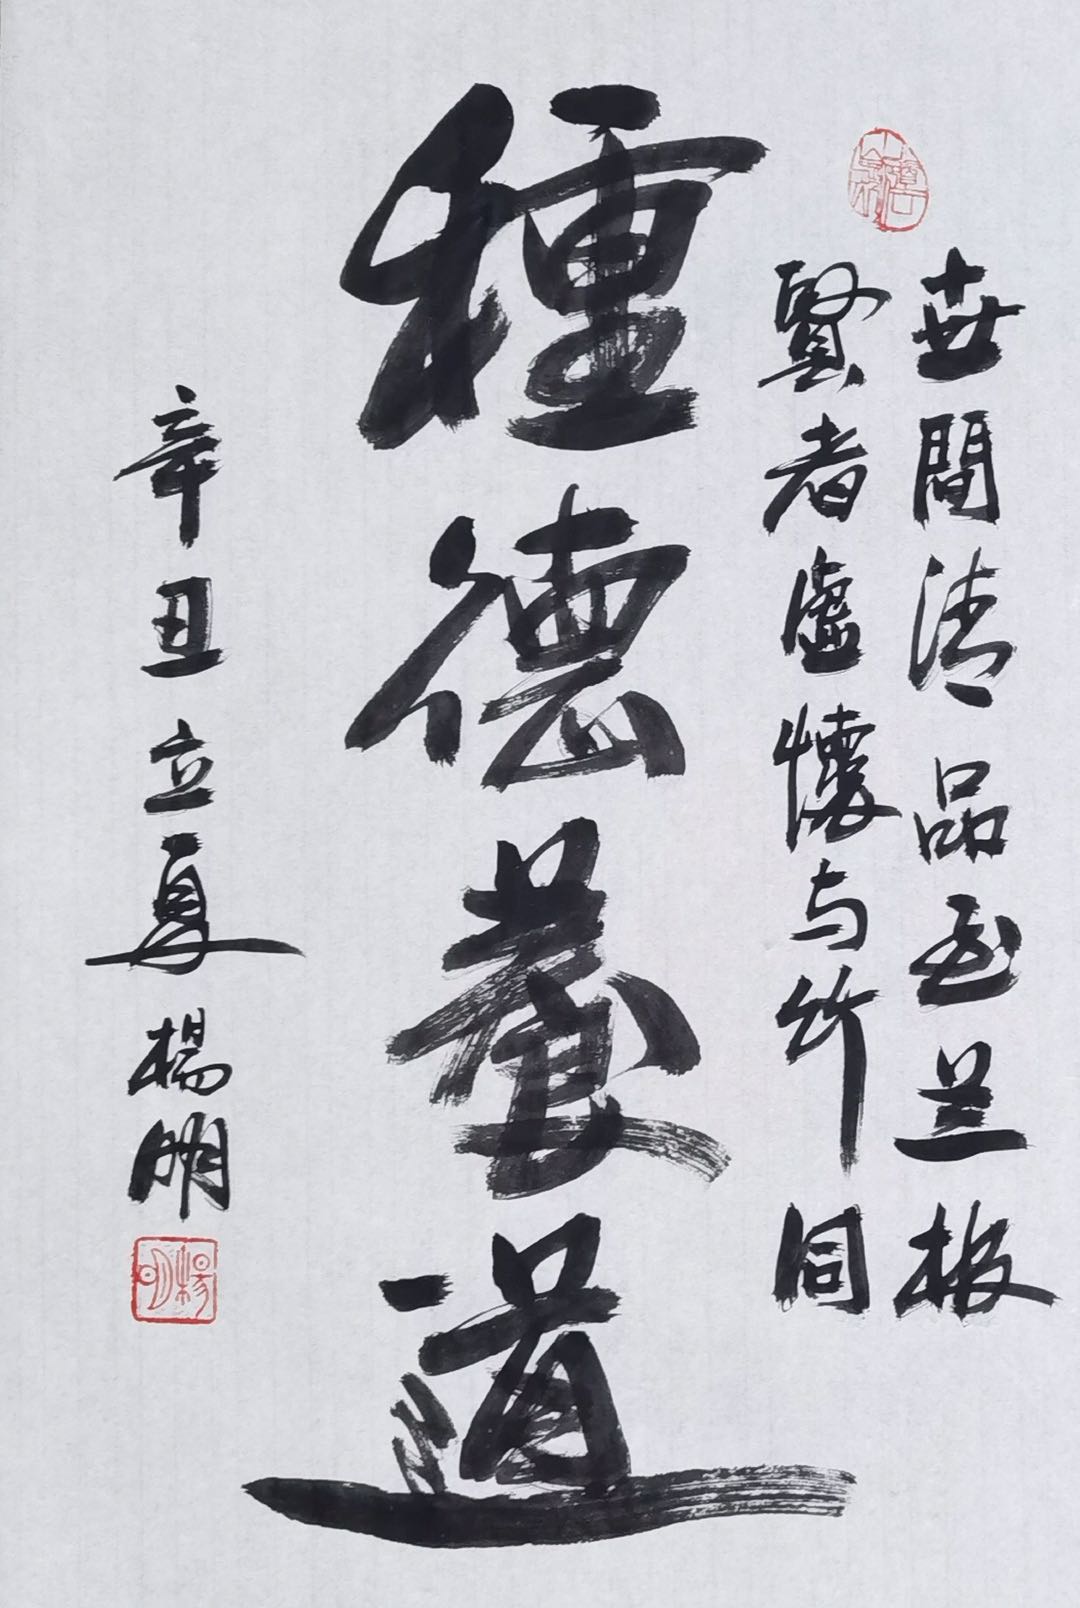 世間清品至兰极
賢者虛懷与竹同
種德養道
辛丑立夏楊明
楊明